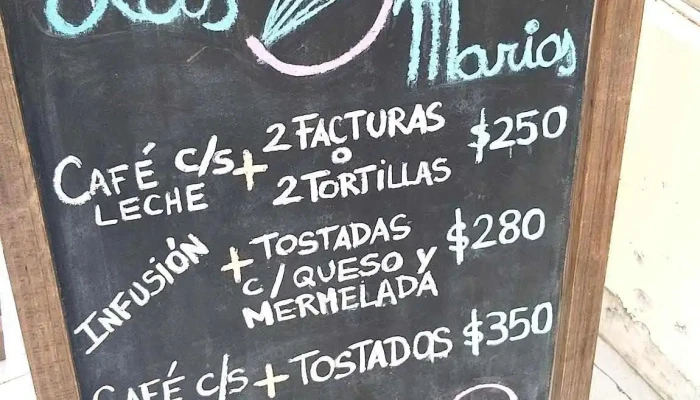 Los
Marios
CAFÉ c/s LECHE + 2 FACTURAS o 2 TORTILLAS $250
INFUSIÓN + TOSTADAS c/QUESO y MERMELADA $280
CAFÉ c/s + TOSTADOS $350